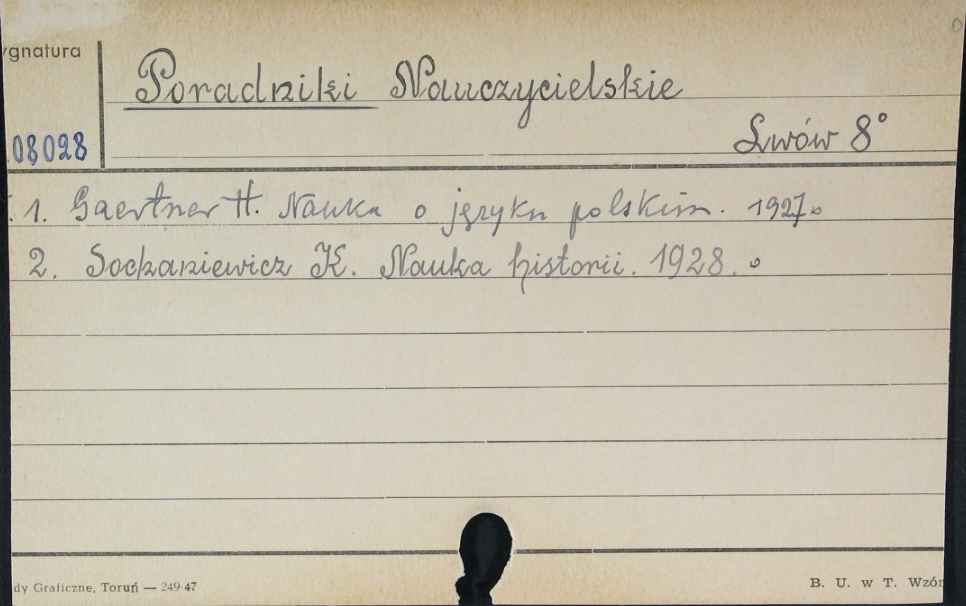 ygnatura
Poradniki Nauczycielskie
Lwów 8°
08028
1. Gaertner H. Nauka o języku polskim. 1927.
2. Sochaniewicz K. Nauka historii. 1928.
dy Graficzne, Toruń — 249 47
B. U. w T. Wzór